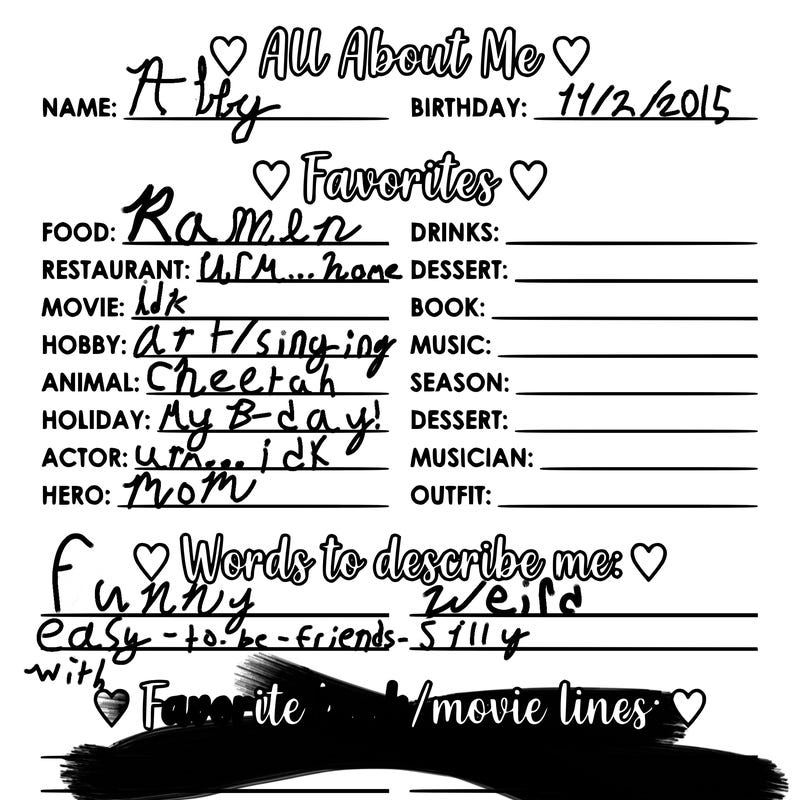 All About Me
NAME: Abby BIRTHDAY: 11/2/2015
Favorites
FOOD: Ramen DRINKS:
RESTAURANT: urm...home DESSERT:
MOVIE: idk BOOK:
HOBBY: art/singing MUSIC:
ANIMAL: Cheetah SEASON:
HOLIDAY: My B-day! DESSERT:
ACTOR: urm...idk MUSICIAN:
HERO: mom OUTFIT:
Words to describe me:
funny weird
easy-to-be-friends- silly
with
Favorite /movie lines: